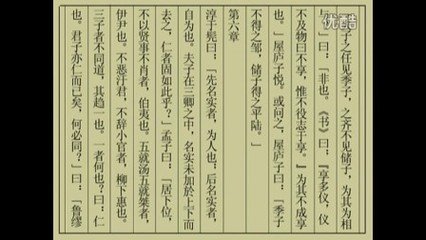 子之任见季子,之齐不见储子,为其为相
与?」曰:「非也。《书》曰:『享多仪,仪
不及物曰不享,惟不役志于享。』为其不成享
也。」屋庐子悦。或问之,屋庐子曰:「季子
不得之邹,储子得之平陆。」
第六章
淳于髡曰:「先名实者,为人也;后名实者,
自为也。夫子在三卿之中,名实未加於上下而
去之,仁者固如此乎?」孟子曰:「居下位,
不以贤事不肖者,伯夷也。五就汤五就桀者,
伊尹也。不恶汙君,不辞小官者,柳下惠也。
三子者不同道,其趋一也。一者何也?曰:仁
也。君子亦仁而已矣,何必同?」曰:「鲁缪
优酷